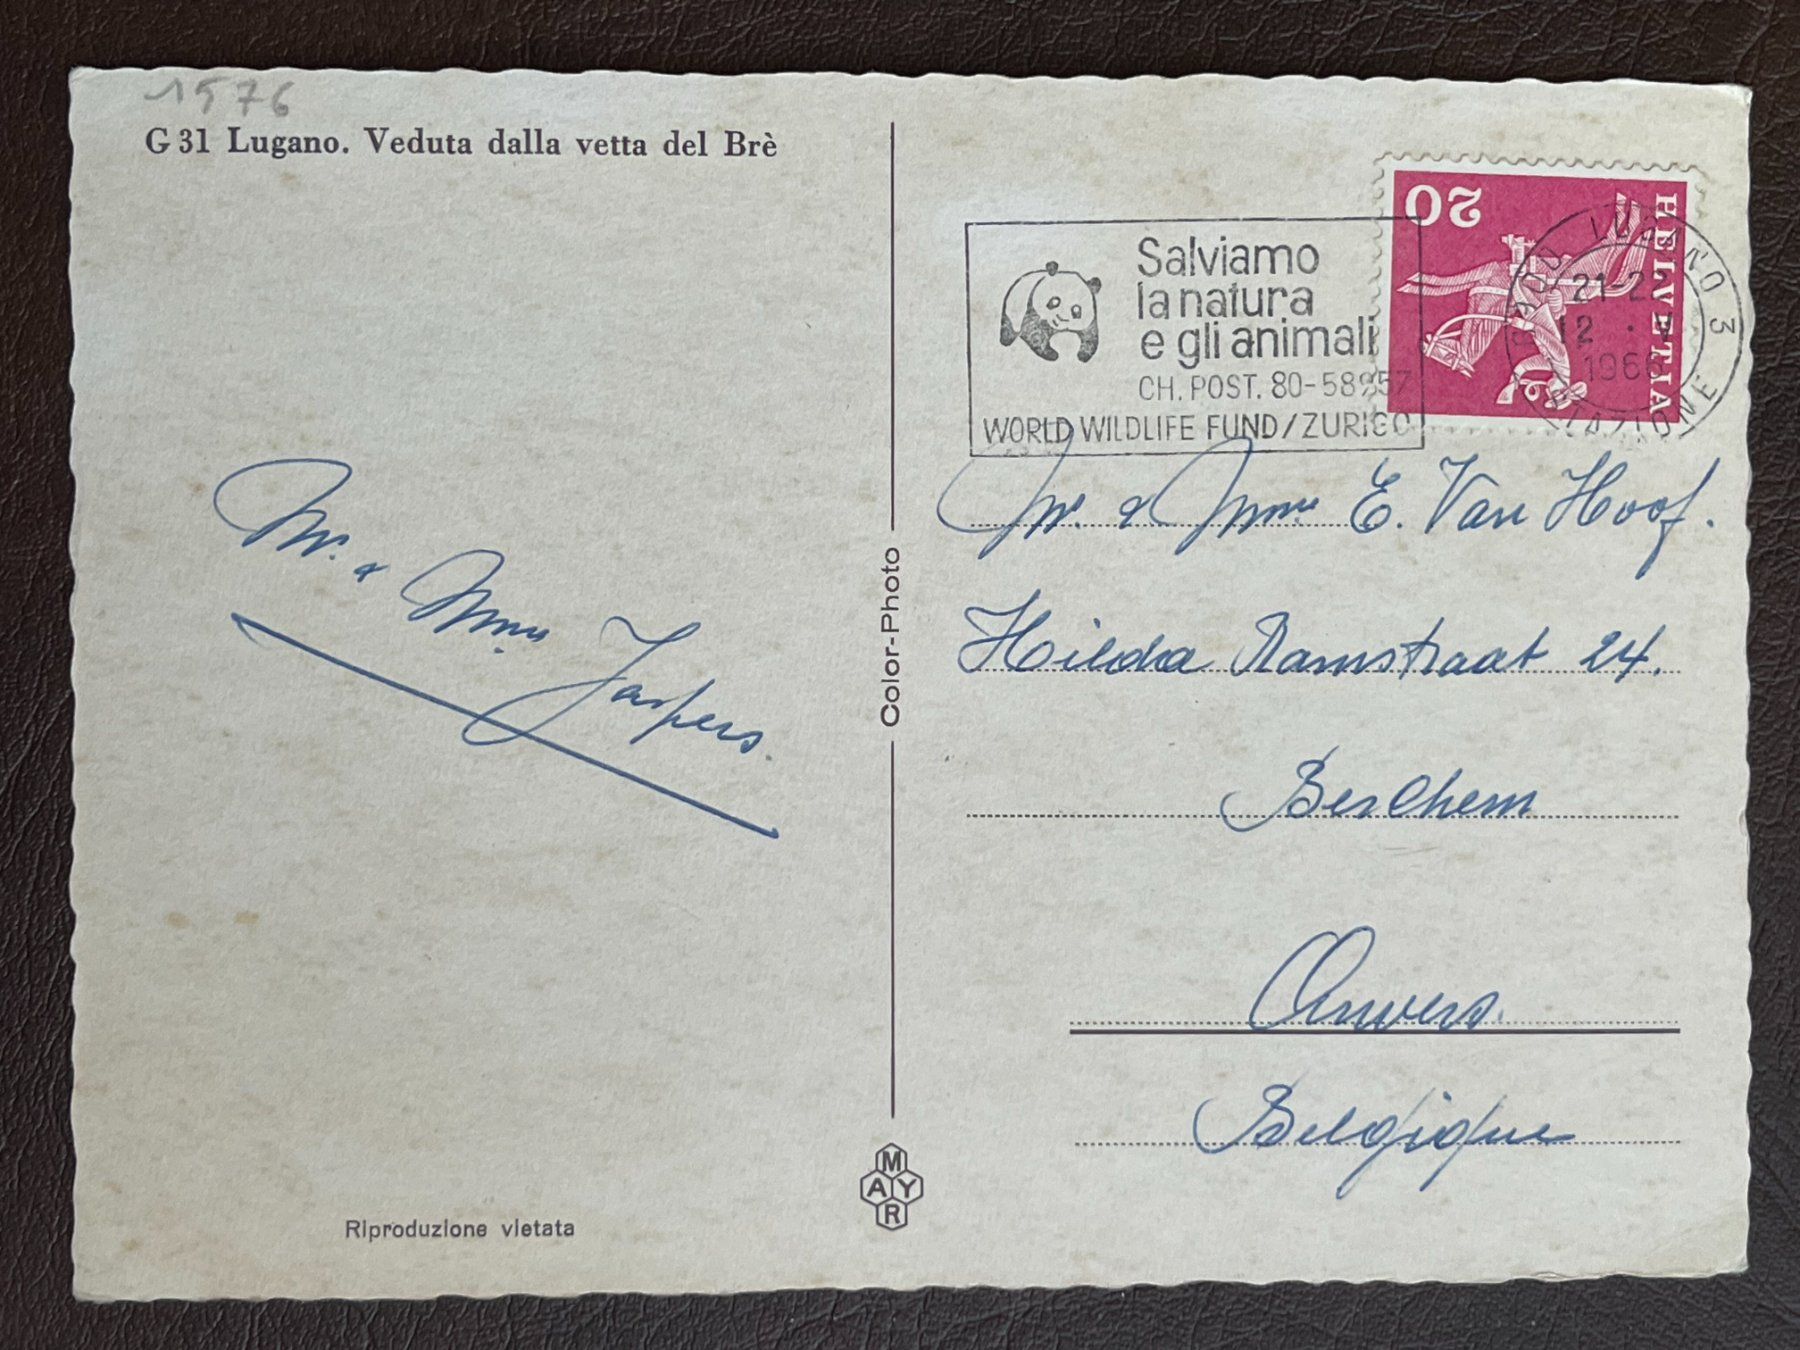 1576
G 31 Lugano. Veduta dalla vetta del Brè
Mr. & Mme Jaspers.
Riproduzione vietata
Color-Photo
MAYR
Salviamo
la natura
e gli animali
CH. POST. 80-58957
WORLD WILDLIFE FUND/ZURIGO
20
HELVETIA
6900 LUGANO 3
21-22
12
1966
STAZIONE
Mr. & Mme E. Van Hoof.
Hilda Ramstraat 24.
Berchem
Anvers.
Belgique